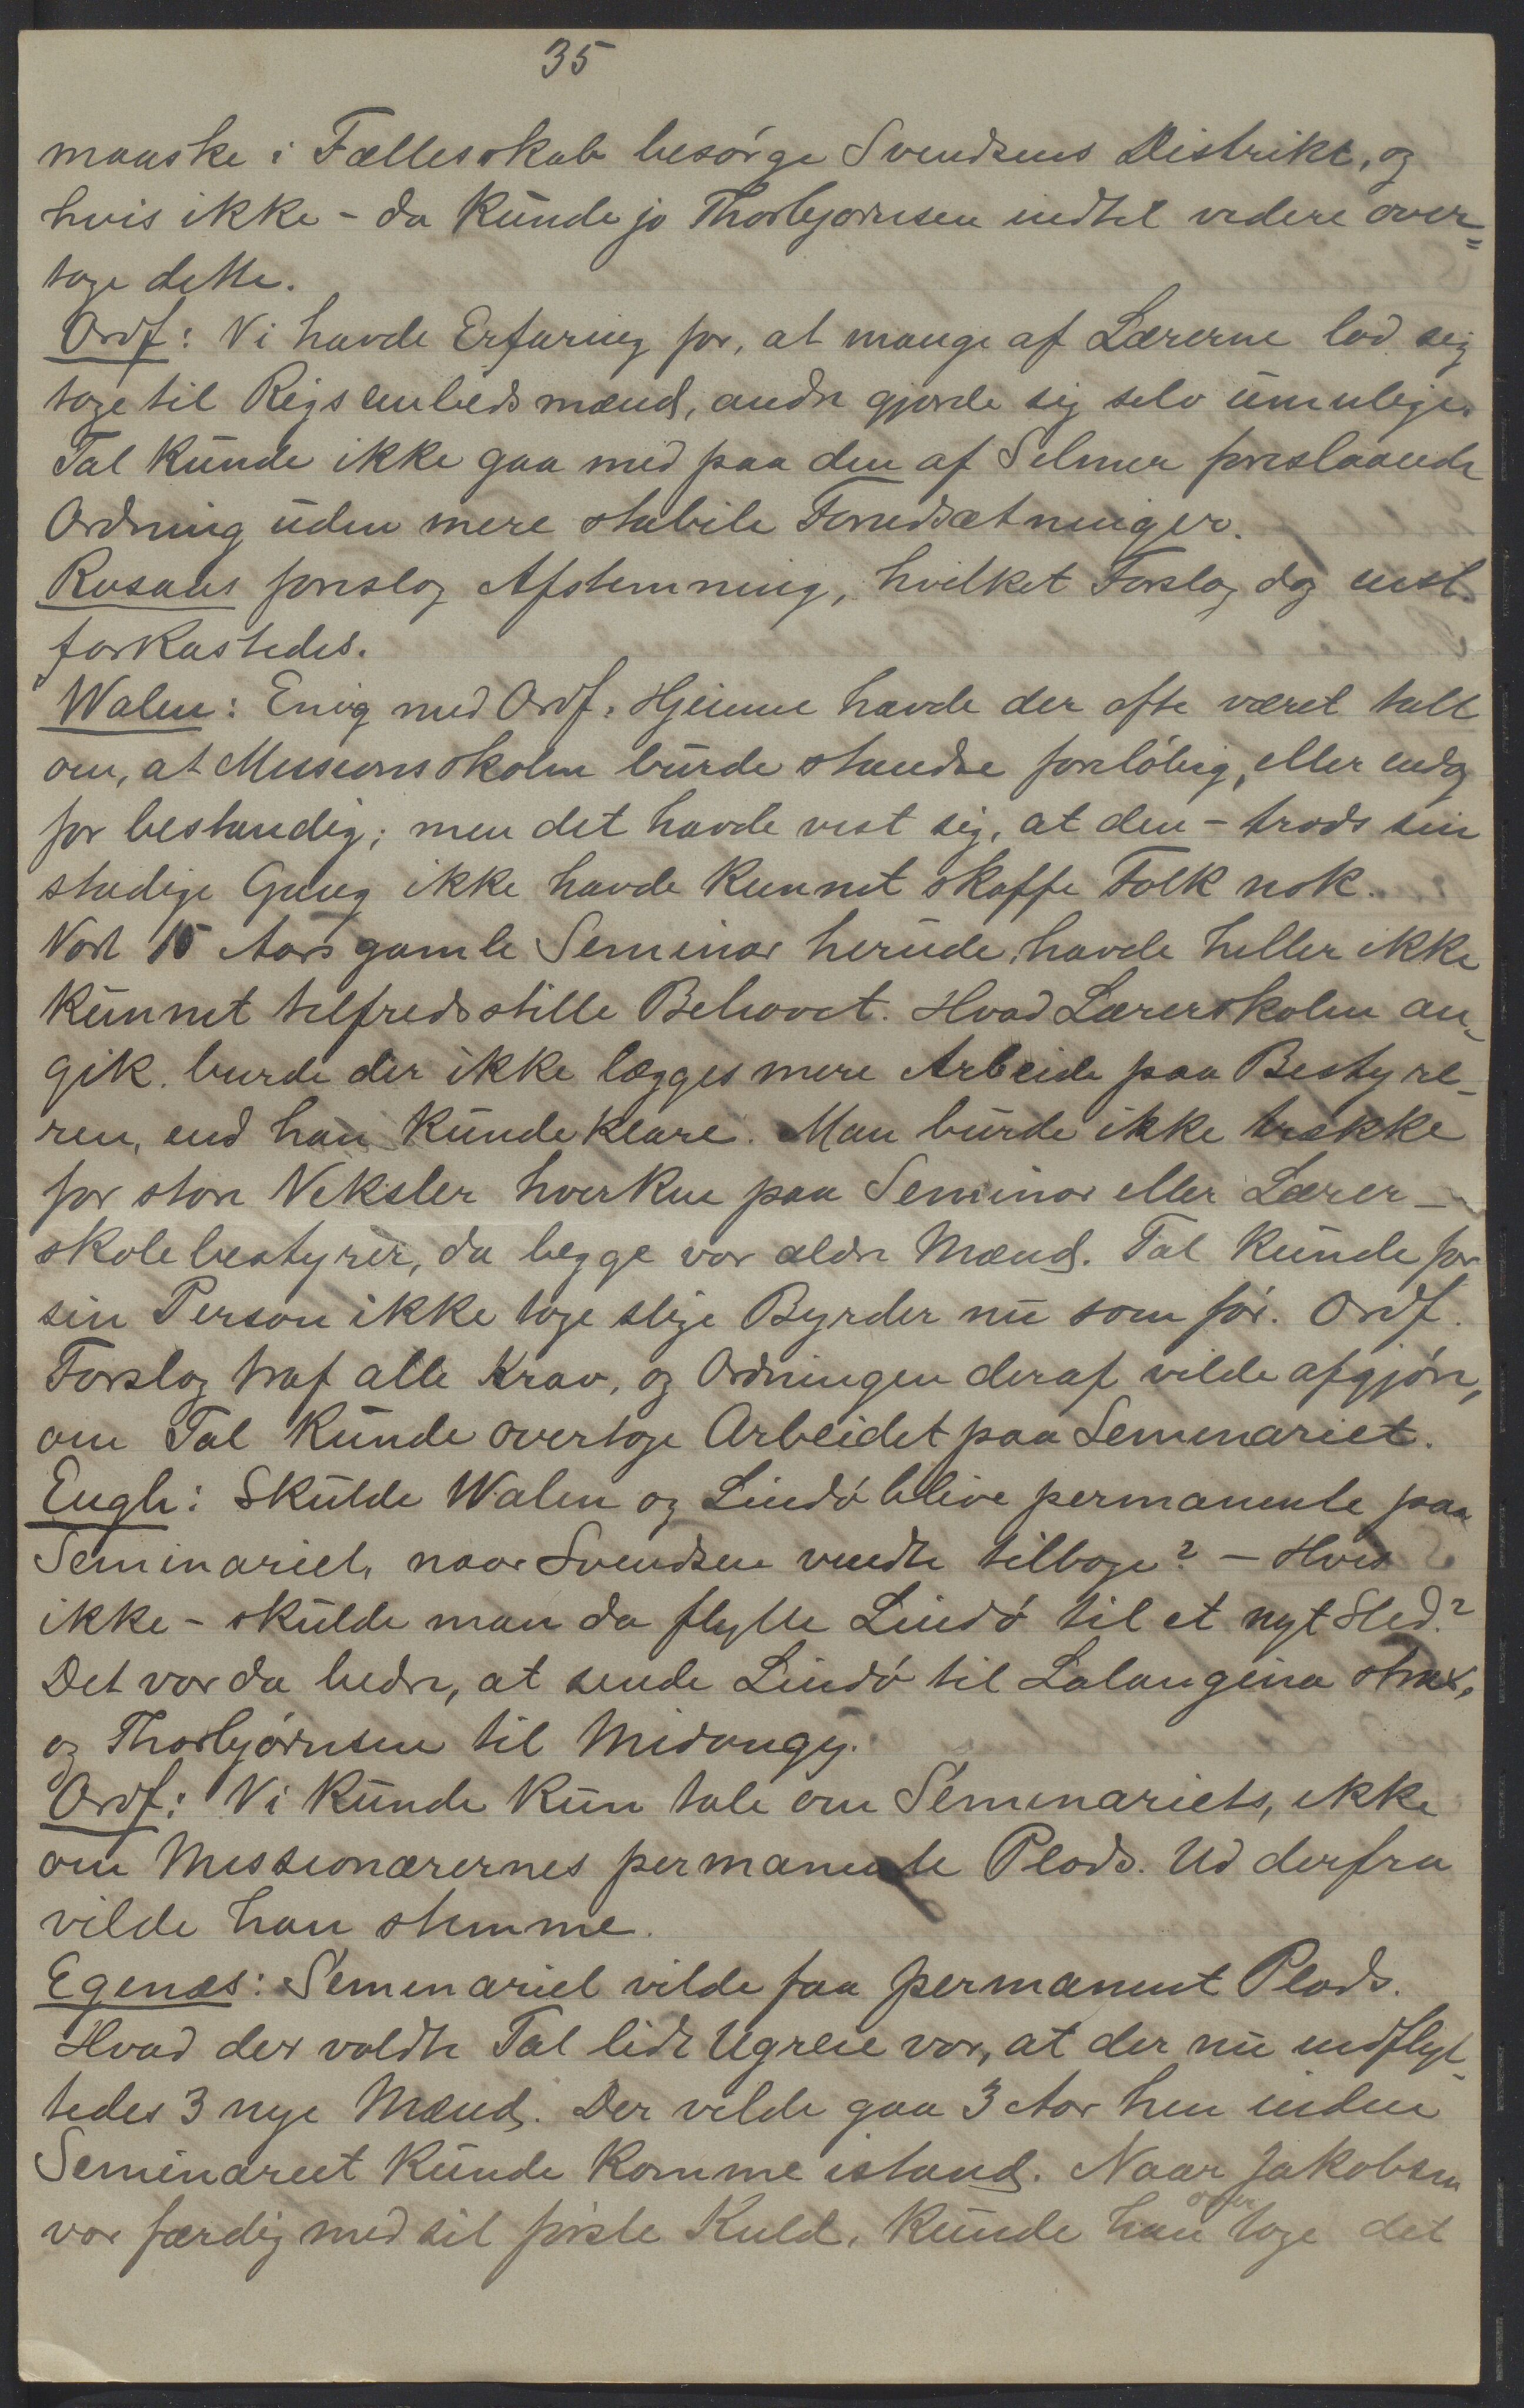 35
maaske i Fællesskab besørge Svendsens Distrikt, og
hvis ikke - da kunde jo Thorbjørnsen indtil videre over=
tage dette.
Ordf: Vi havde Erfaring for, at mange af Lærerne lod sig
tage til Regsembedsmænd, andre gjorde sig selv umulige.
Tal kunde ikke gaa med paa den af Selmer foreslaaede
Ordning uden mere stabile Forudsætninger.
Rosaas foreslog Afstemning, hvilket Forslag dog
forkastedes.
Walen: Enig med Ordf. Hjemme havde der ofte været talt
om, at Missionsskolen burde standse foreløbig, eller endog
for bestandig; men det havde vist sig, at den - trods sin
stadige Gang ikke havde kunnet skaffe Folk nok.
Vort 15 Aars gamle Seminar herude, havde heller ikke
kunnet tilfredsstille Behovet. Hvad Lærerskolen an-
gik. burde der ikke lægges mere Arbeide paa Bestyre-
ren, end han kunde klare. Man burde ikke trække
for store Veksler hverken paa Seminar eller Lærer-
skolebestyrer, da begge var ældre Mænd. Tal kunde for
sin Person ikke tage slige Byrder nu som før. Ordf.
Forslag traf alle Krav, og Ordningen deraf vilde afgjøre,
om Tal kunde overtage Arbeidet paa Seminariet.
Engh: Skulde Walen og Lindø blive permanente paa
Seminariet, naar Svendsen vendte tilbage? - Hvis
ikke - skulde man da flytte Lindø til et nyt Sted?
Det var da bedre, at sende Lindø til Lalangina strax,
og Thorbjørnsen til Midongy.
Ordf: Vi kunde kun tale om Seminariets, ikke
om Missionærernes permanente Plads. Ud derfra
vilde han stemme.
Egenæs: Seminariet vilde faa permanent Plads.
Hvad der voldte Tal lidt Ugreie var, at der nu indflyt-
tedes 3 nye Mænd. Der vilde gaa 3 Aar hen inden
Seminariet kunde komme istand. Naar Jakobsen
var færdig med sit første Kuld, kunde han overtage det